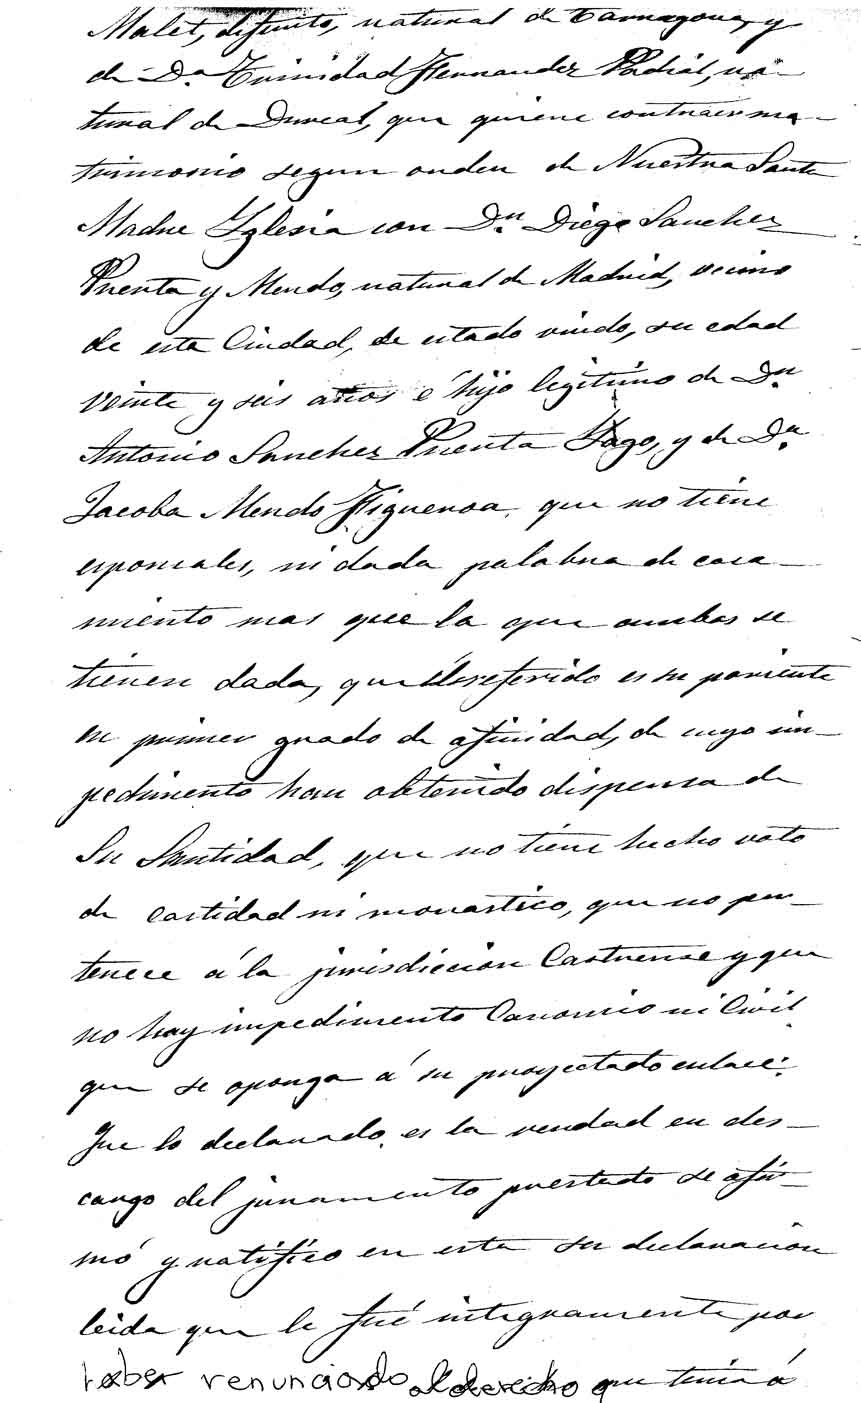 Malet, difunto, natural de Tarragona, y
de Dª Trinidad Fernandez Padial, na-
tural de Durcal, que quiere contraer ma-
trimonio segun orden de Nuestra Santa
Madre Yglesia con Dn. Diego Sanchez
Puerta y Mendo, natural de Madrid, vecino
de esta Ciudad, de estado viudo, su edad
veinte y seis años é hijo legitimo de Dn
Antonio Sanchez Puerta Lago, y de Dª
Jacoba Mendo Figueroa, que no tiene
esponsales, ni dada palabra de casa-
miento mas que la que ambos se
tienen dada, que el referido es su pariente
en primer grado de afinidad, de cuyo im-
pedimento han obtenido dispensa de
Su Santidad, que no tiene hecho voto
de castidad ni monastico, que no per-
tenece á la jurisdiccion Castrense y que
no hay impedimento Canonico ni Civil
que se oponga á su proyectado enlace.
Que lo declarado es la verdad en des-
cargo del juramento prestado se afir-
mó y ratifico en esta su declaracion
leida que le fué integramente por
haber renunciado al derecho que tenia á